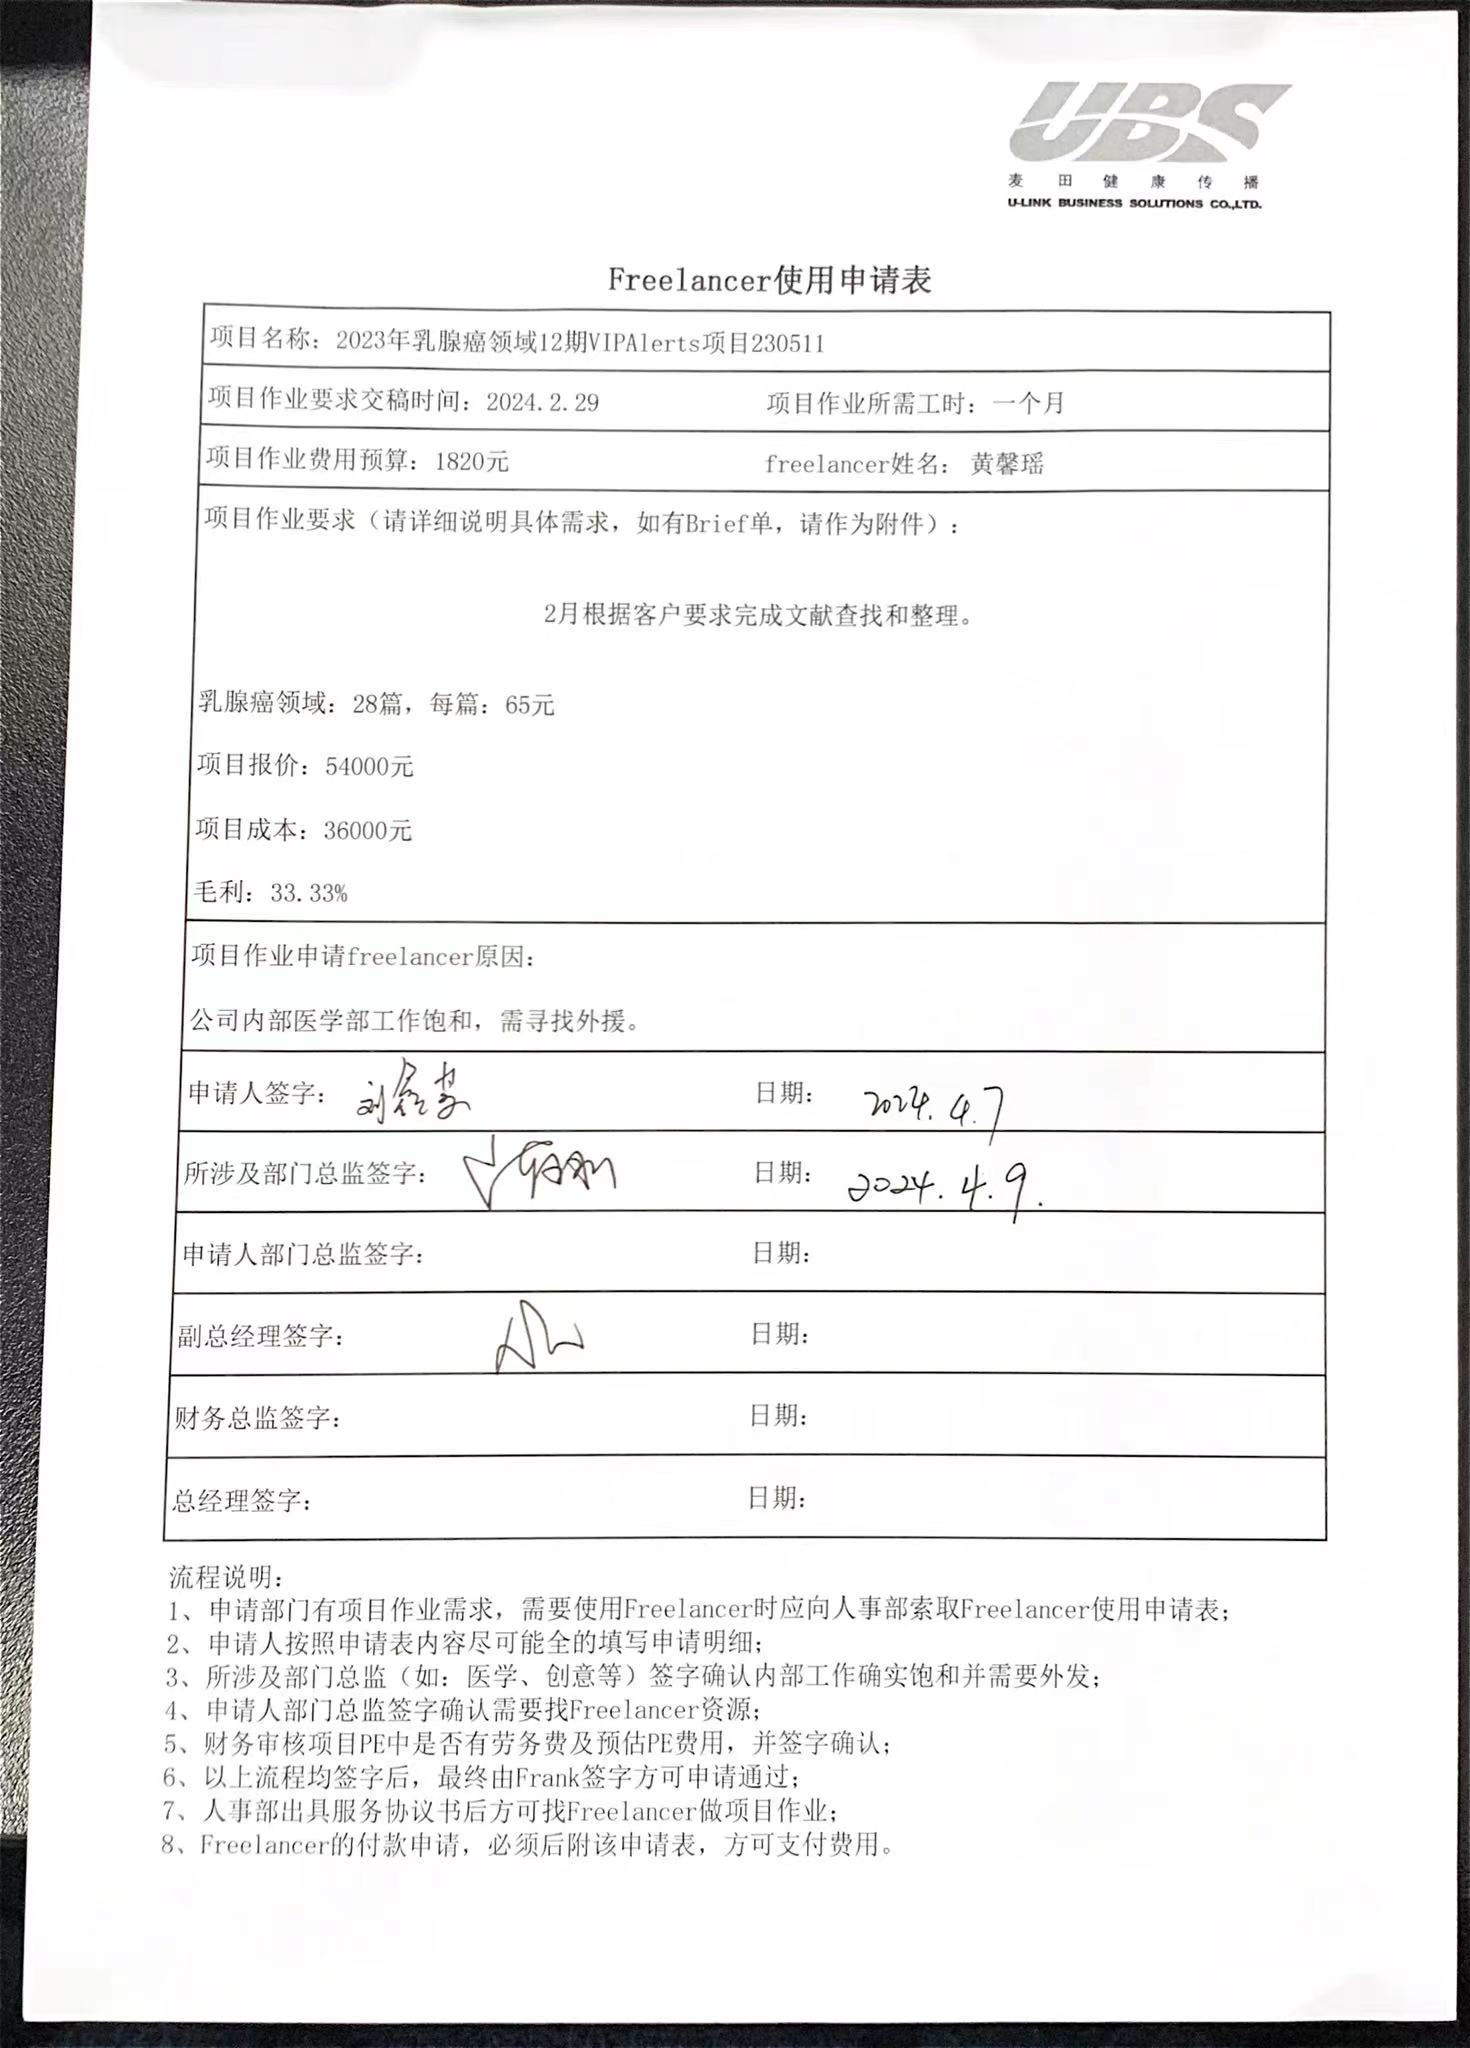 UBS
麦田健康传播
U-LINK BUSINESS SOLUTIONS CO.,LTD.
Freelancer使用申请表
项目名称：2023年乳腺癌领域12期VIPAlerts项目230511
项目作业要求交稿时间：2024.2.29 项目作业所需工时：一个月
项目作业费用预算：1820元 freelancer姓名：黄馨瑶
项目作业要求（请详细说明具体需求，如有Brief单，请作为附件）：
2月根据客户要求完成文献查找和整理。
乳腺癌领域：28篇，每篇：65元
项目报价：54000元
项目成本：36000元
毛利：33.33%
项目作业申请freelancer原因：
公司内部医学部工作饱和，需寻找外援。
申请人签字： 日期： 2024.4.7
所涉及部门总监签字： 日期： 2024.4.9.
申请人部门总监签字： 日期：
副总经理签字： 日期：
财务总监签字： 日期：
总经理签字： 日期：
流程说明：
1、申请部门有项目作业需求，需要使用Freelancer时应向人事部索取Freelancer使用申请表；
2、申请人按照申请表内容尽可能全的填写申请明细；
3、所涉及部门总监（如：医学、创意等）签字确认内部工作确实饱和并需要外发；
4、申请人部门总监签字确认需要找Freelancer资源；
5、财务审核项目PE中是否有劳务费及预估PE费用，并签字确认；
6、以上流程均签字后，最终由Frank签字方可申请通过；
7、人事部出具服务协议书后方可找Freelancer做项目作业；
8、Freelancer的付款申请，必须后附该申请表，方可支付费用。